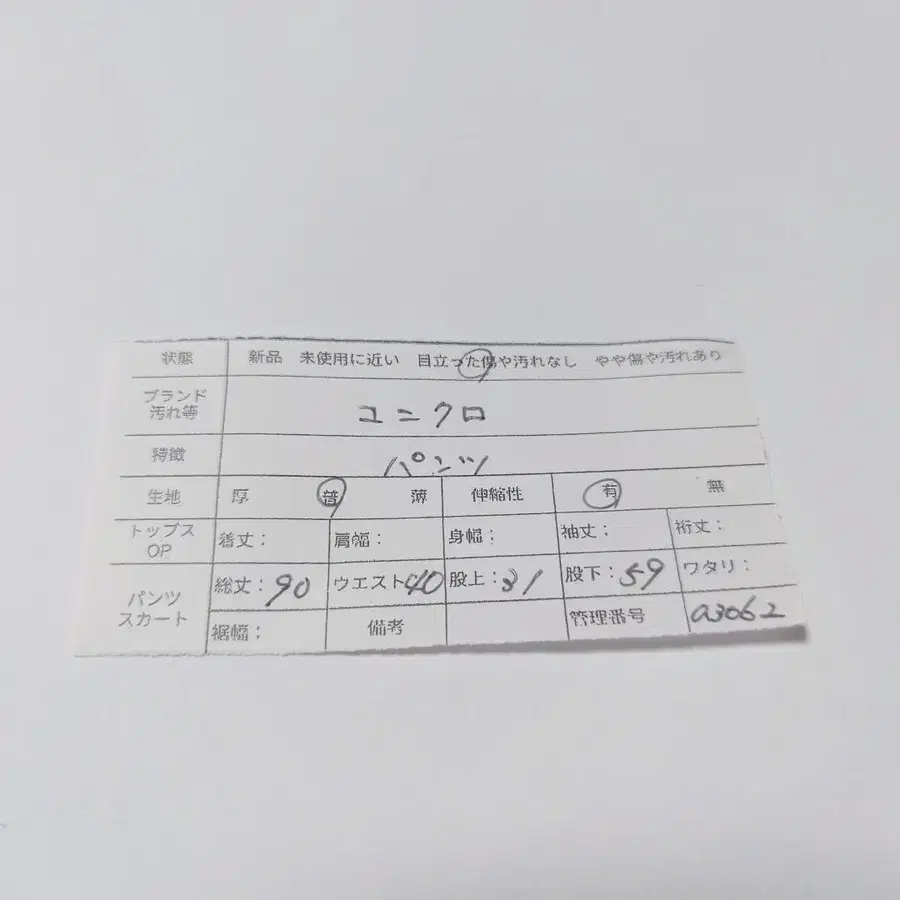 状態 新品 未使用に近い 目立った傷や汚れなし やや傷や汚れあり
ブランド
汚れ等 ユニクロ
特徴 パンツ
生地 厚 普 薄 伸縮性 有 無
トップス
OP 着丈: 肩幅: 身幅: 袖丈: 裄丈:
パンツ
スカート 総丈:90 ウエスト40 股上:31 股下:59 ワタリ:
裾幅: 備考 管理番号 a3062